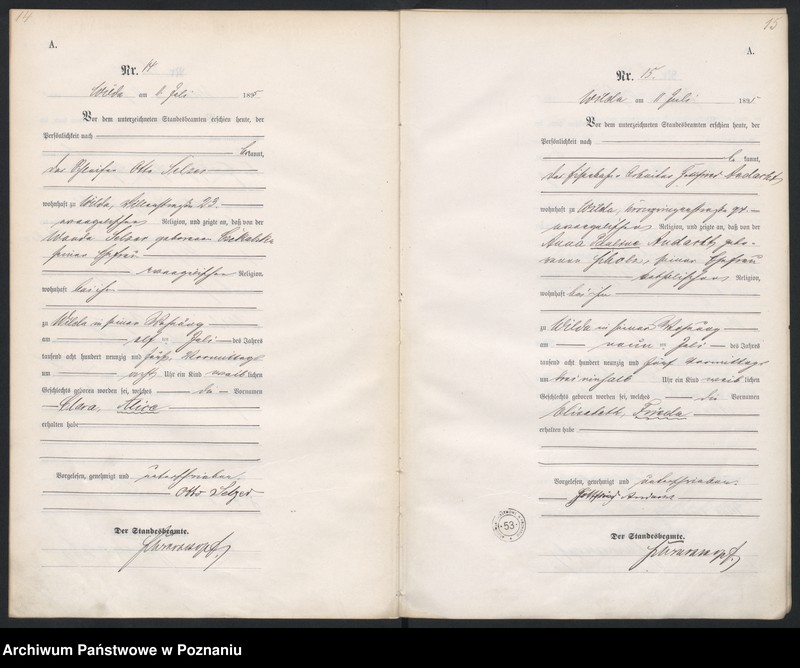 14
A.
Nr. 14
Wilda am Juli 1895
Vor dem unterzeichneten Standesbeamten erschien heute, der
Persönlichkeit nach
kannt,
der Otto Selzer
wohnhaft zu Wilda, 23.
evangelischer Religion, und zeigte an, daß von der
Wanda Selzer geborenen
seiner Ehefrau
evangelischer Religion,
wohnhaft bei ihm
zu Wilda in seiner Wohnung
am elf ten Juli des Jahres
tausend acht hundert neunzig und fünf, Vormittags
um Uhr ein Kind weiblichen
Geschlechts geboren worden sei, welches die Vornamen
Clara,
erhalten habe
Vorgelesen, genehmigt und unterschrieben.
Otto Selzer
Der Standesbeamte.
15
A.
Nr. 15
Wilda am Juli 1895
Vor dem unterzeichneten Standesbeamten erschien heute, der
Persönlichkeit nach
be kannt,
der Arbeiter
wohnhaft zu Wilda,
evangelischer Religion, und zeigte an, daß von der
Anna Pauline gebo-
renen Scholz, seiner Ehefrau
katholischer Religion,
wohnhaft bei ihm
zu Wilda in seiner Wohnung
am neun ten Juli des Jahres
tausend acht hundert neunzig und fünf Vormittags
um Uhr ein Kind weiblichen
Geschlechts geboren worden sei, welches die Vornamen
Elisabeth, Frieda
erhalten habe
Vorgelesen, genehmigt und unterschrieben.
Gottfried
Der Standesbeamte.
53
Archiwum Państwowe w Poznaniu